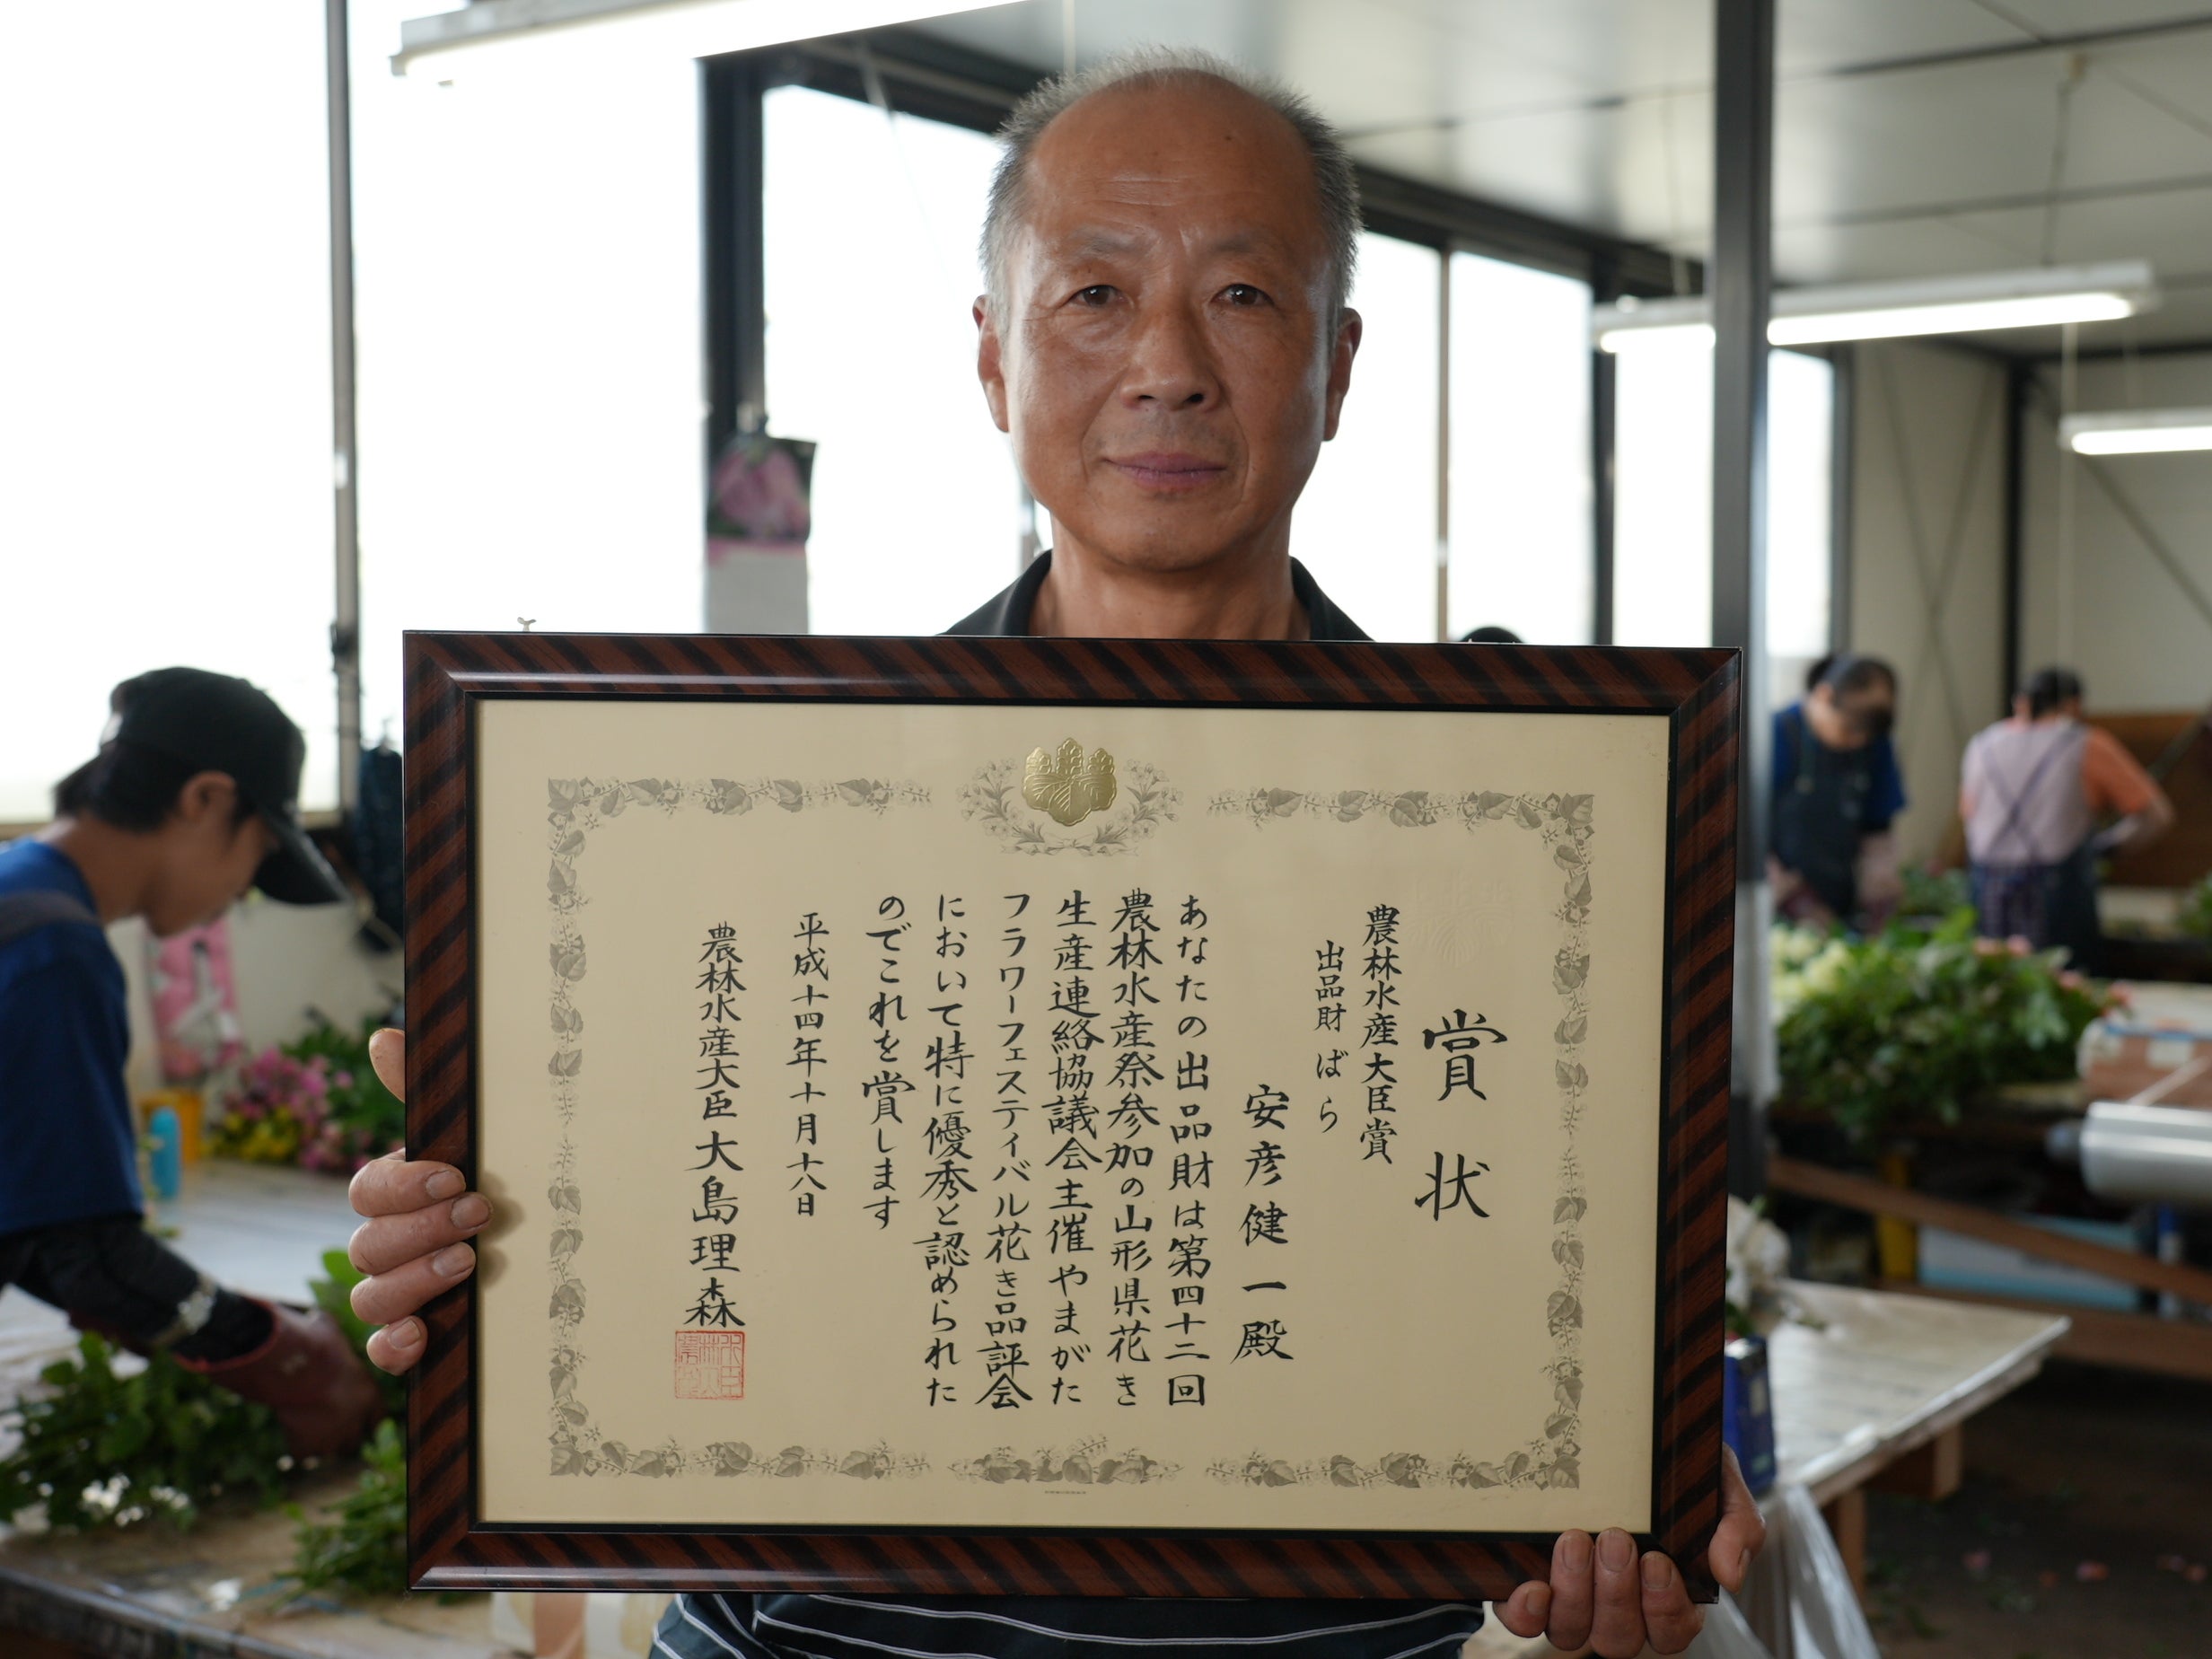 賞状
農林水産大臣賞
出品財 ばら
安彦健一殿
あなたの出品財は第四十二回
農林水産祭参加の山形県花き
生産連絡協議会主催やまがた
フラワーフェスティバル花き品評会
において特に優秀と認められた
のでこれを賞します
平成十四年十月十八日
農林水産大臣 大島理森